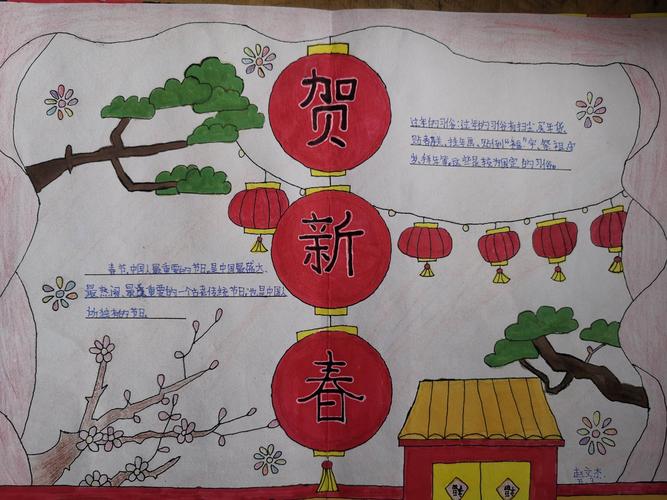 贺
新
春
过年的习俗:过年的习俗有扫尘、买年货、
贴春联、挂年画、贴倒“福”字、祭祖守
岁、拜年等,这些是较为固定的习俗。
春节,中国人最重要的节日,是中国最盛大、
最热闹、最重要的一个古老传统节日,也是中国人
所独有的节日。
赵文杰